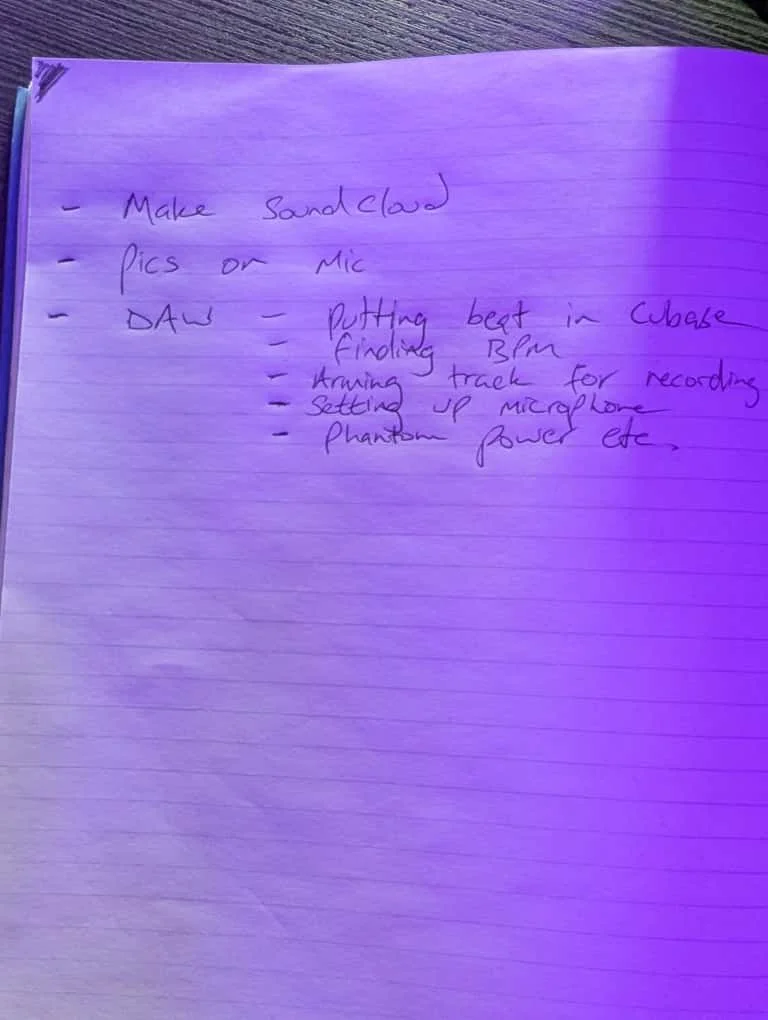 - Make SoundCloud
- Pics on Mic
- DAW - Putting beat in Cubase
- finding BPM
- Arming track for recording
- Setting up microphone
- Phantom power etc.